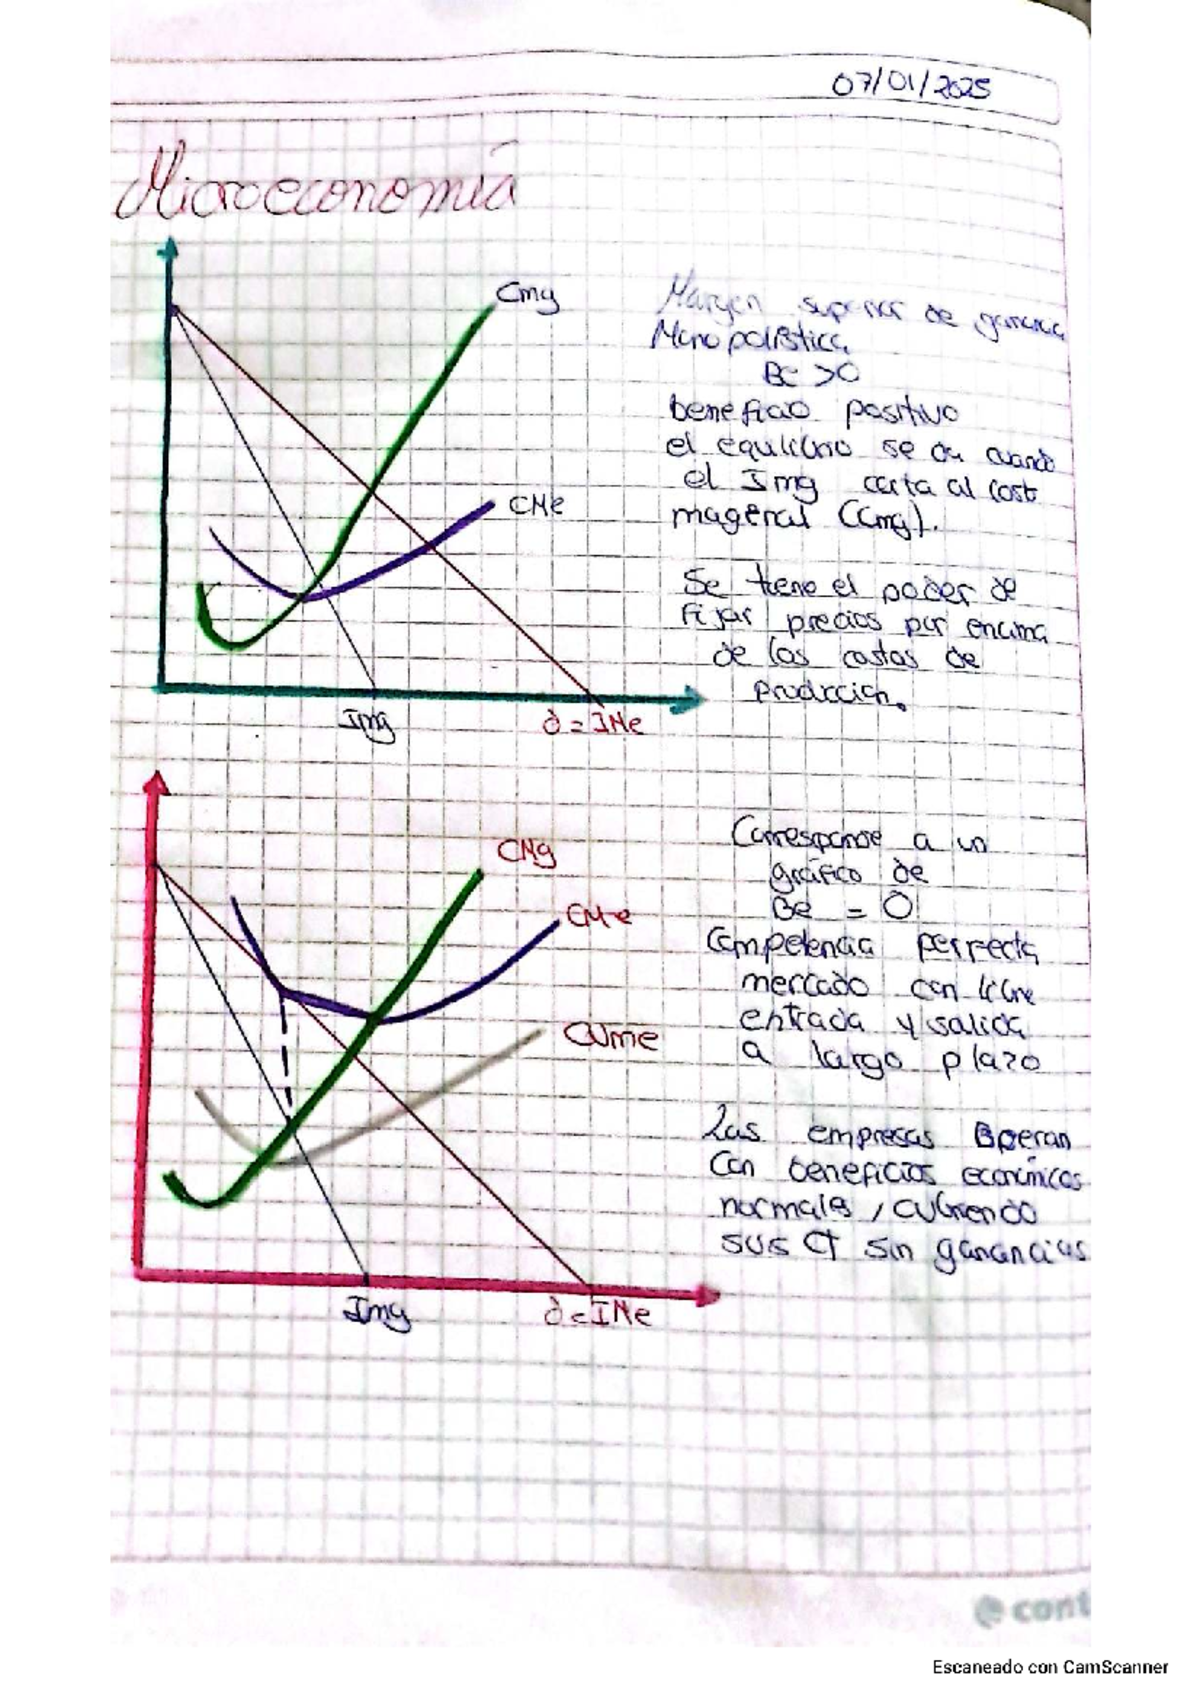 07/01/2025
Microeconomía
Cmg
CMe
Img
d = IMe
Margen superior de ganancia
Monopolística
BE >0
beneficio positivo
el equilibrio se da cuando
el Img corta al cost
magenal (Cmg).
Se tiene el poder de
fijar precios por encima
de los costos de
produccion.
CMg
CMe
CVme
Img
d = IMe
Corresponde a un
gráfico de
Be = 0
Competencia perfecta
mercado con libre
entrada y salida
a largo plazo
Las empresas operan
con beneficios económicos
normales, cubriendo
sus CT sin ganancias
cont
Escaneado con CamScanner